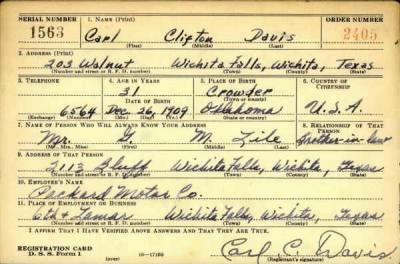 SERIAL NUMBER 1. NAME (Print) ORDER NUMBER
1563 Carl Clifton Davis 2405
(First) (Middle) (Last)
2. ADDRESS (Print)
203 Walnut Wichita Falls, Wichita, Texas
(Number and street or R. F. D. number) (Town) (County) (State)
3. TELEPHONE 4. AGE IN YEARS 5. PLACE OF BIRTH 6. COUNTRY OF CITIZENSHIP
31 Crowder
DATE OF BIRTH (Town or county)
6564 Dec. 26, 1909 Oklahoma U.S.A.
(Exchange) (Number) (Mo.) (Day) (Yr.) (State or country)
7. NAME OF PERSON WHO WILL ALWAYS KNOW YOUR ADDRESS 8. RELATIONSHIP OF THAT PERSON
Mr. M. Brother-in-law
(Mr., Mrs., Miss) (First) (Middle) (Last)
9. ADDRESS OF THAT PERSON
2113 Wichita Falls, Wichita, Texas
(Number and street or R. F. D. number) (Town) (County) (State)
10. EMPLOYER'S NAME
Packard Motor Co.
11. PLACE OF EMPLOYMENT OR BUSINESS
6th & Lamar Wichita Falls, Wichita, Texas
(Number and street or R. F. D. number) (Town) (County) (State)
I AFFIRM THAT I HAVE VERIFIED ABOVE ANSWERS AND THAT THEY ARE TRUE.
REGISTRATION CARD
D. S. S. Form 1 (over) 16—17105 Carl C. Davis
(Registrant's signature)